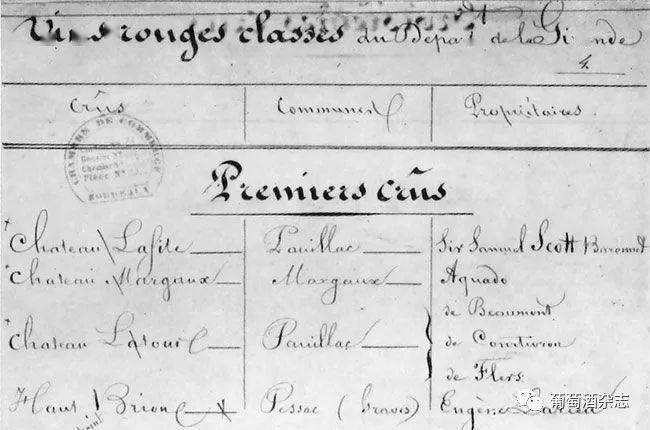 Vins rouges classés du Dépt de la Gironde
4.
Crûs Communes Propriétaires
CHAMBRE DE COMMERCE
BORDEAUX
Premiers crûs
Chateau Lafite Pauillac Sir Samuel Scott Baronnet
Chateau Margaux Margaux Aguado
de Beaumont
Chateau Latour Pauillac de Courtivron
de Flers
Haut Brion Pessac (Graves) Eugène Larrieu
葡萄酒杂志